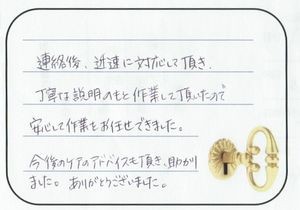 連絡後、迅速に対応して頂き、
丁寧な説明のもと作業して頂いたので
安心して作業をお任せできました。
今後のケアのアドバイスも頂き、助かり
ました。ありがとうございました。